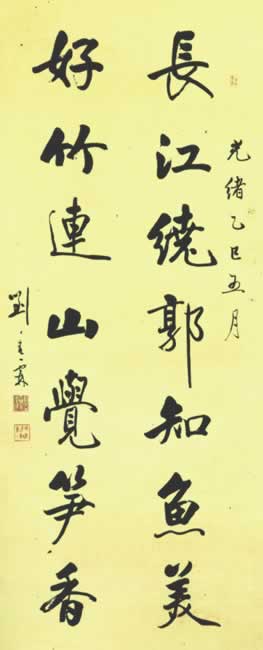 光緒乙巳五月
長江繞郭知魚美
好竹連山覺笋香
劉春霖